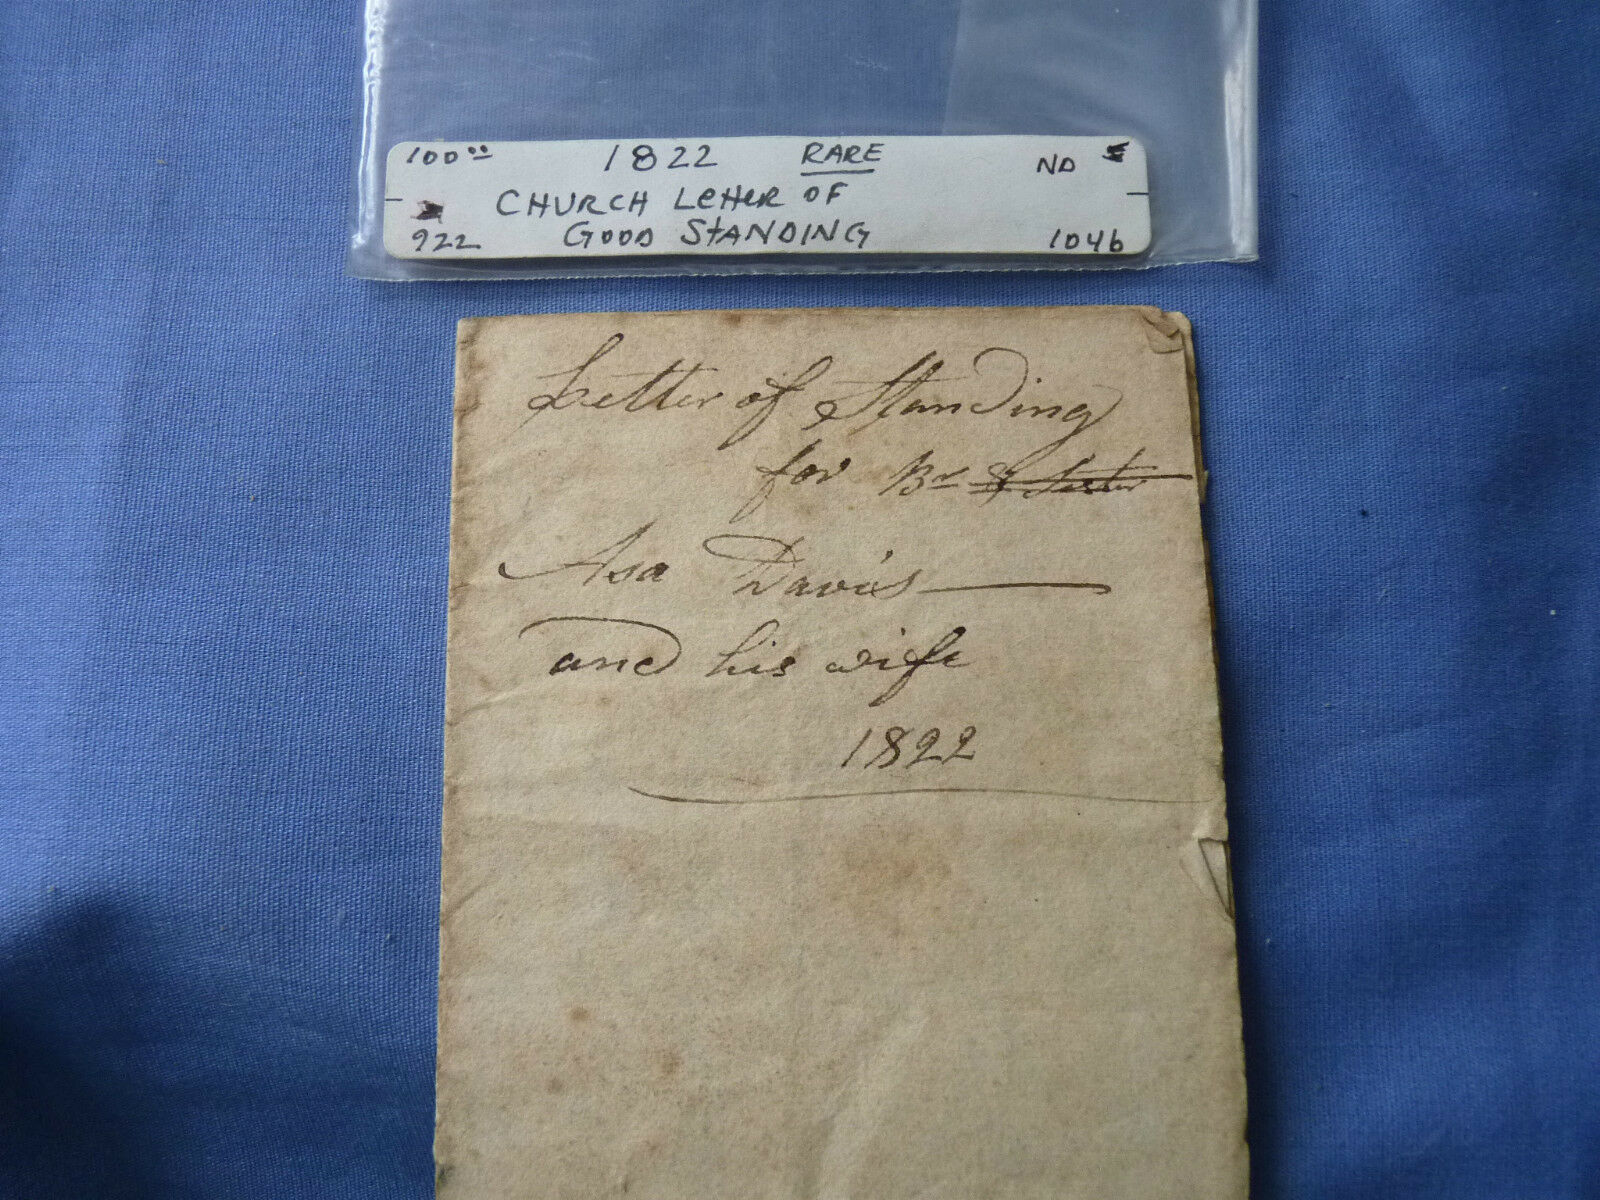 100.00 1822 RARE ND
CHURCH LETTER OF
922 GOOD STANDING 1046
Letter of Standing
for Br & Sister
Asa Davis
and his wife
1822